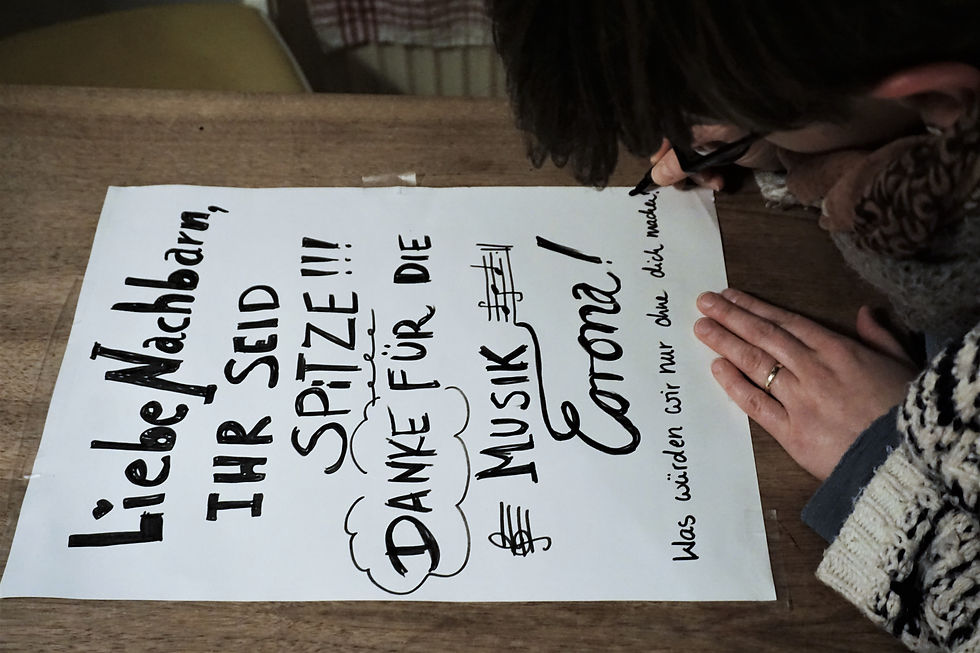 Liebe Nachbarn,
IHR SEID
SPITZE!!!
DANKE FÜR DIE
MUSIK
Corona!
Was würden wir nur ohne dich machen?